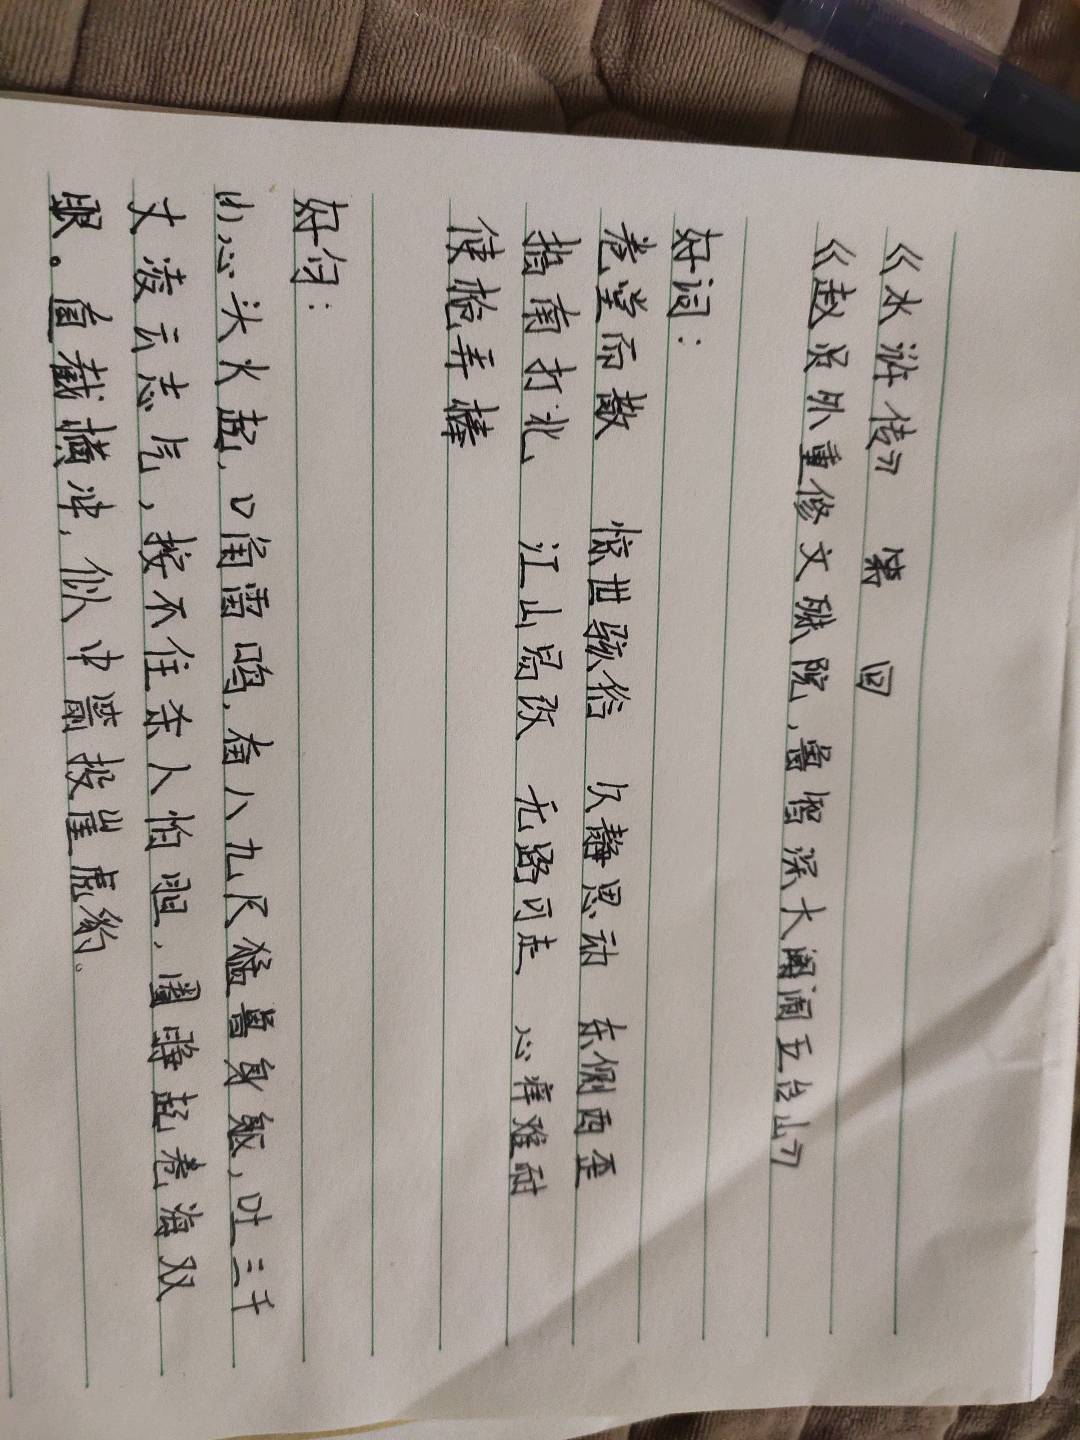 《水浒传》 第 回
《赵员外重修文殊院,鲁智深大闹五台山》
好词:
卷堂而散 惊世骇俗 久静思动 东侧西歪
指南打北、 江山易改 无路可走 心痒难耐
使枪弄棒
好句:
(1)心头火起,口角雷鸣,奋八九尺猛兽身躯,吐三千
丈凌云志气,按不住杀人怕胆,圆睁起卷海双
眼。直截横冲,似中箭投崖虎豹。